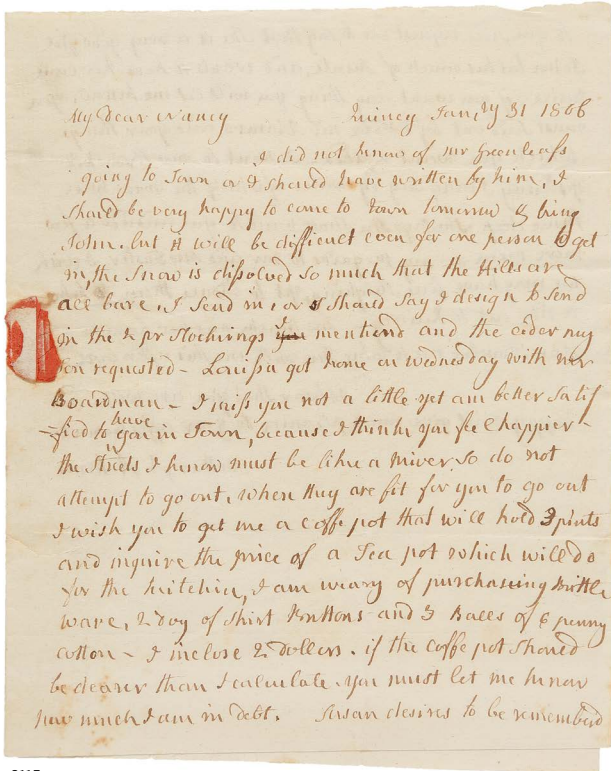 My Dear Nancy Quincy Janry 31 1806
I did not know of mr Greenleafs
going to Town or I should have written by him, I
should be very happy to come to town tomorrow & bring
John. but it will be difficult even for one person to get
in, the Snow is dissolved so much that the Hills are
all bare. I send in, or I should say I design to send
in the 2 pr Stockings you I mentiond and the cider mug
you requested - Louissa got home on wednesday with mr
Boardman - I miss you not a little yet am better satis
fied to have you in Town, because I think you feel happier -
the Streets I know must be like a river, so do not
attempt to go out. when they are fit for you to go out
I wish you to get me a coffe pot that will hold 3 pints
and inquire the price of a Tea pot which will do
for the kitchin, I am weary of purchasing Brittle
ware, 2 doz of shirt Buttons and 3 Balls of 6 penny
cotton - I inclose 2 dollors. if the coffe pot should
be dearer than I calculate. you must let me know
how much I am in debt. Susan desires to be rememberd